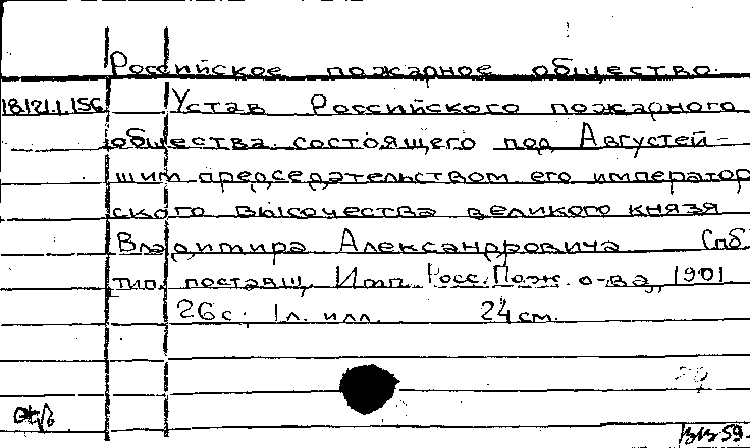 Российское пожарное общество.
18.121.1.156 Устав Российского пожарного
общества состоящего под Августей-
шим председательством его император
ского высочества великого князя
Владимира Александровича Спб
тип. поставщ. Имп. Росс. Пож. о-ва, 1901
26с; 1л. илл. 24 см.